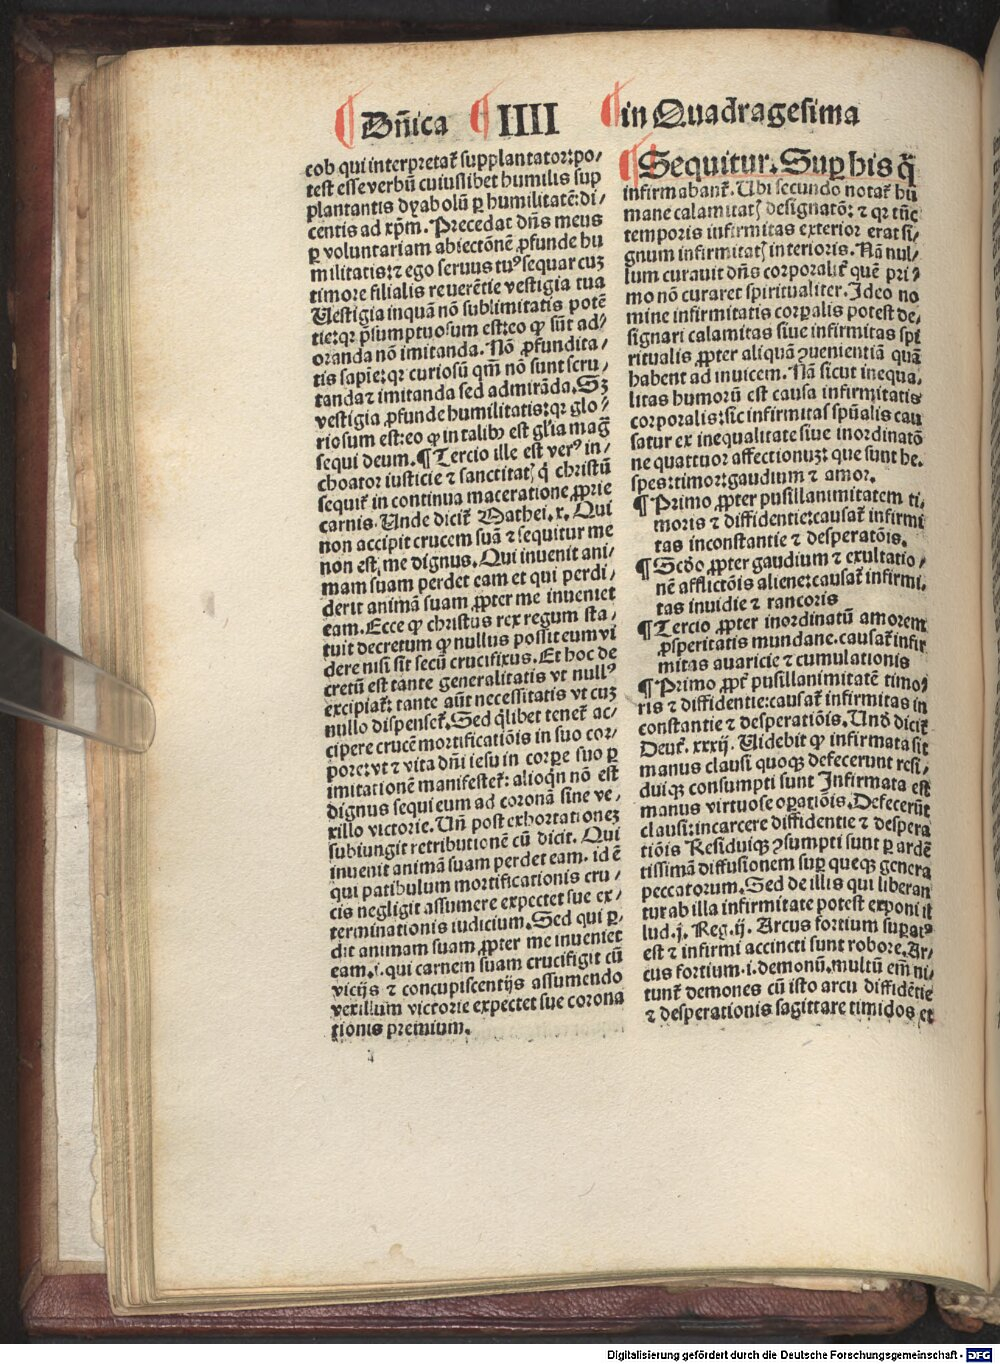 ¶ Dñica ¶ IIII ¶ in Quadragesima
cob qui interpretat̃ supplantator: po/
test esse verbũ cuiuslibet humilis sup
plantantis dyabolũ ꝑ humilitatẽ: di/
centis ad xp̃m. Precedat dñs meus
ꝑ voluntariam abiectõnẽ ꝓfunde hu
militatis: ⁊ ego seruus tuꝰ sequar cuꝫ
timore filialis reuerẽtie vestigia tua
Uestigia inquã nõ sublimitatis potẽ
tie: qꝛ p̃sumptuosum est: eo ꝙ sũt ad/
oranda nõ imitanda. Nõ ꝓfundita/
tis sapiẽ: qꝛ curiosũ qm̃ nõ sunt scru/
tanda ⁊ imitanda sed admirãda. Sꝫ
vestigia ꝓfunde humilitatis: qꝛ glo/
riosum est: eo ꝙ in talibꝰ est gl̃ia mag̃
sequi deum. ¶ Tercio ille est verꝰ in/
choator iusticie ⁊ sanctitatꝭ q̃ christũ
sequit̃ in continua maceratione ꝓprie
carnis. Unde dicit̃ Mathei. x. Qui
non accipit crucem suã ⁊ sequitur me
non est me dignus. Qui inuenit ani/
mam suam perdet eam et qui perdi/
derit animã suam ꝓpter me inueniet
eam. Ecce ꝙ christus rex regum sta/
tuit decretum ꝙ nullus possit eum vi
dere nisi sit secũ crucifixus. Et hoc de
cretũ est tante generalitatis vt nullꝰ
excipiat̃: tante aũt necessitatis vt cuꝫ
nullo dispenset̃. Sed q̃libet tenet̃ ac/
cipere crucẽ mortificatiõis in suo cor/
pore: vt ⁊ vita dñi iesu in corꝑe suo ꝑ
imitationẽ manifestet̃: alioq̃n nõ est
dignus sequi eum ad coronã sine ve/
xillo victorie. Uñ post exhortationeꝫ
subiungit retributionẽ cũ dicit. Qui
inuenit animã suam perdet eam. id ẽ
qui patibulum mortificationis cru/
cis negligit assumere expectet sue ex/
terminationis iudicium. Sed qui ꝑ/
dit animam suam ꝓpter me inueniet
eam .i. qui carnem suam crucifigit cũ
vicijs ⁊ concupiscentijs assumendo
vexillum victorie expectet sue corona
tionis premium.
¶ Sequitur. Suꝑ his q̃
infirmabant̃. Ubi secundo notat̃ hu
mane calamitatꝭ designatõ: ⁊ qꝛ tũc
temporis infirmitas exterior erat si/
gnum infirmitatꝭ interioris. Nã nul/
lum curauit dñs corporalit̃ quẽ pri/
mo nõ curaret spiritualiter. Ideo no
mine infirmitatis corꝑalis potest de/
signari calamitas siue infirmitas spi
ritualis ꝓpter aliquã ꝯuenientiã quã
habent ad inuicem. Nã sicut inequa/
litas humorũ est causa infirmitatis
corporalis: sic infirmitas spũalis cau
satur ex inequalitate siue inordinatõ
ne quattuor affectionuꝫ: que sunt he.
spes: timor: gaudium ⁊ amor.
¶ Primo ꝓpter pusillanimitatem ti/
moris ⁊ diffidentie: causat̃ infirmi
tas inconstantie ⁊ desperatõis.
¶ Scd̃o ꝓpter gaudium ⁊ exultatio/
nẽ afflictõis aliene: causat̃ infirmi/
tas inuidie ⁊ rancoris
¶ Tercio ꝓpter inordinatũ amorem
ꝓsperitatis mundane. causat̃ infir
mitas auaricie ⁊ cumulationis
¶ Primo ꝓpt̃ pusillanimitatẽ timo/
ris ⁊ diffidentie: causat̃ infirmitas in
constantie ⁊ desperatiõis. Und̃ dicit̃
Deut̃. xxxij. Uidebit ꝙ infirmata sit
manus clausi quoqꝫ defecerunt resi/
duiqꝫ consumpti sunt Infirmata est
manus virtuose oꝑatiõis. Defecerũt
clausi: incarcere diffidentie ⁊ despera
tiõis Residuiqꝫ ꝯsumpti sunt ꝑ ardẽ
tissimã diffusionem suꝑ queqꝫ genera
peccatorum. Sed de illis qui liberan
tur ab illa infirmitate potest exponi il
lud .j. Reg. ij. Arcus fortium suꝑatꝰ
est ⁊ infirmi accincti sunt robore. Ar/
cus fortium .i. demonũ. multũ em̃ ni/
tunt̃ demones cũ isto arcu diffidẽtie
⁊ desperationis sagittare timidos et
Digitalisierung gefördert durch die Deutsche Forschungsgemeinschaft - DFG